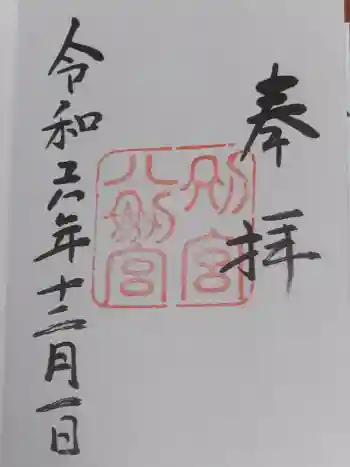 奉拝
八剱宮
別宮
令和六年十二月一日